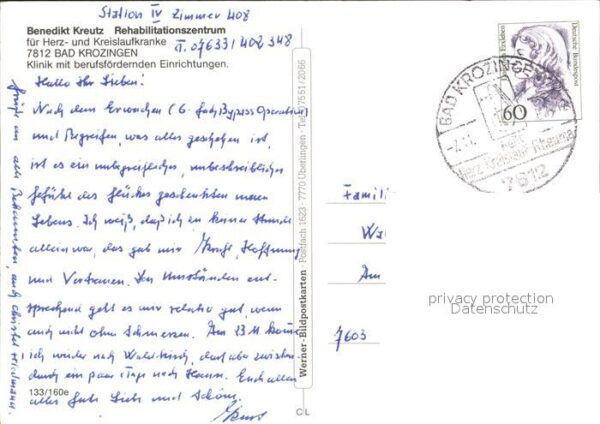 Station IV Zimmer 408
T. 07633/402348
Benedikt Kreutz Rehabilitationszentrum
für Herz- und Kreislaufkranke
7812 BAD KROZINGEN
Klinik mit berufsfördernden Einrichtungen.
Hallo Ihr Lieben!
Nach dem Erwachen (6-fach Bypass Operation)
und Begreifen, was alles geschehen ist,
ist es ein unbegreifliches, unbeschreibliches
Gefühl des Glückes geschenkten neuen
Lebens. Ich weiß, daß ich in keiner Stunde
allein war, das gab mir Kraft, Hoffnung
und Vertrauen. Den Umständen ent-
sprechend geht es mir relativ gut, wenn
auch nicht ohne Schmerzen. Am 23.11. komme
ich wieder nach Waldkirch, darf aber zwischen-
durch ein paar Tage nach Hause. Euch allen
alles Gute Liebe und Schöne.
133/160e
Grüßt an alle Bekannten, auch
Werner-Bildpostkarten · Postfach 1623 · 7770 Überlingen · Tel. 07551/2066
CL
Deutsche Bundespost
60
BAD KROZINGEN
Herz Kreislauf Rheuma
7812
Famili
Am
7603
privacy protection
Datenschutz